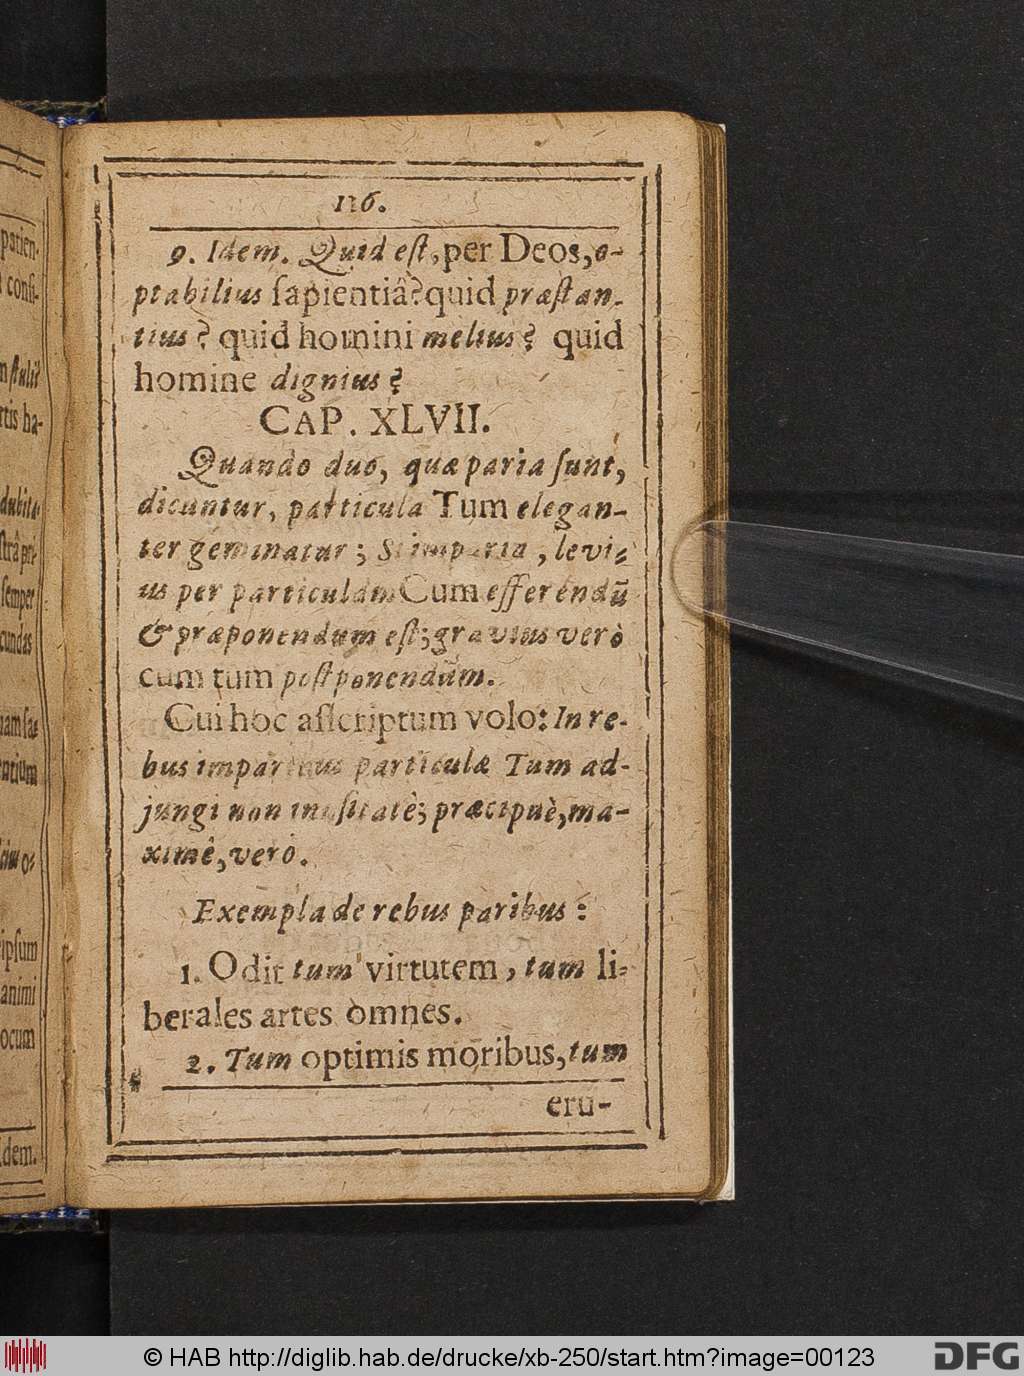 patien-
consi-
stulit
rtis ha-
dubita-
strâ pri-
semper
cundas
uam sa-
entium
ipsum
animi
ocum
Idem.
116.
9. Idem. Quid est, per Deos, o-
ptabilius sapientiâ? quid præstan-
tius? quid homini melius? quid
homine dignius?
CAP. XLVII.
Quando duo, quæ paria sunt,
dicuntur, particula Tum elegan-
ter geminatur; Si imparia, levi-
us per particulam Cum efferendũ
& præponendum est; gravius verò
cum tum postponendum.
Cui hoc asscriptum volo: In re-
bus imparibus particulæ Tum ad-
jungi non inusitatè; præcipuè, ma-
ximê, verò.
Exempla de rebus paribus:
1. Odit tum virtutem, tum li-
berales artes omnes.
2. Tum optimis moribus, tum
eru-
© HAB http://diglib.hab.de/drucke/xb-250/start.htm?image=00123
DFG